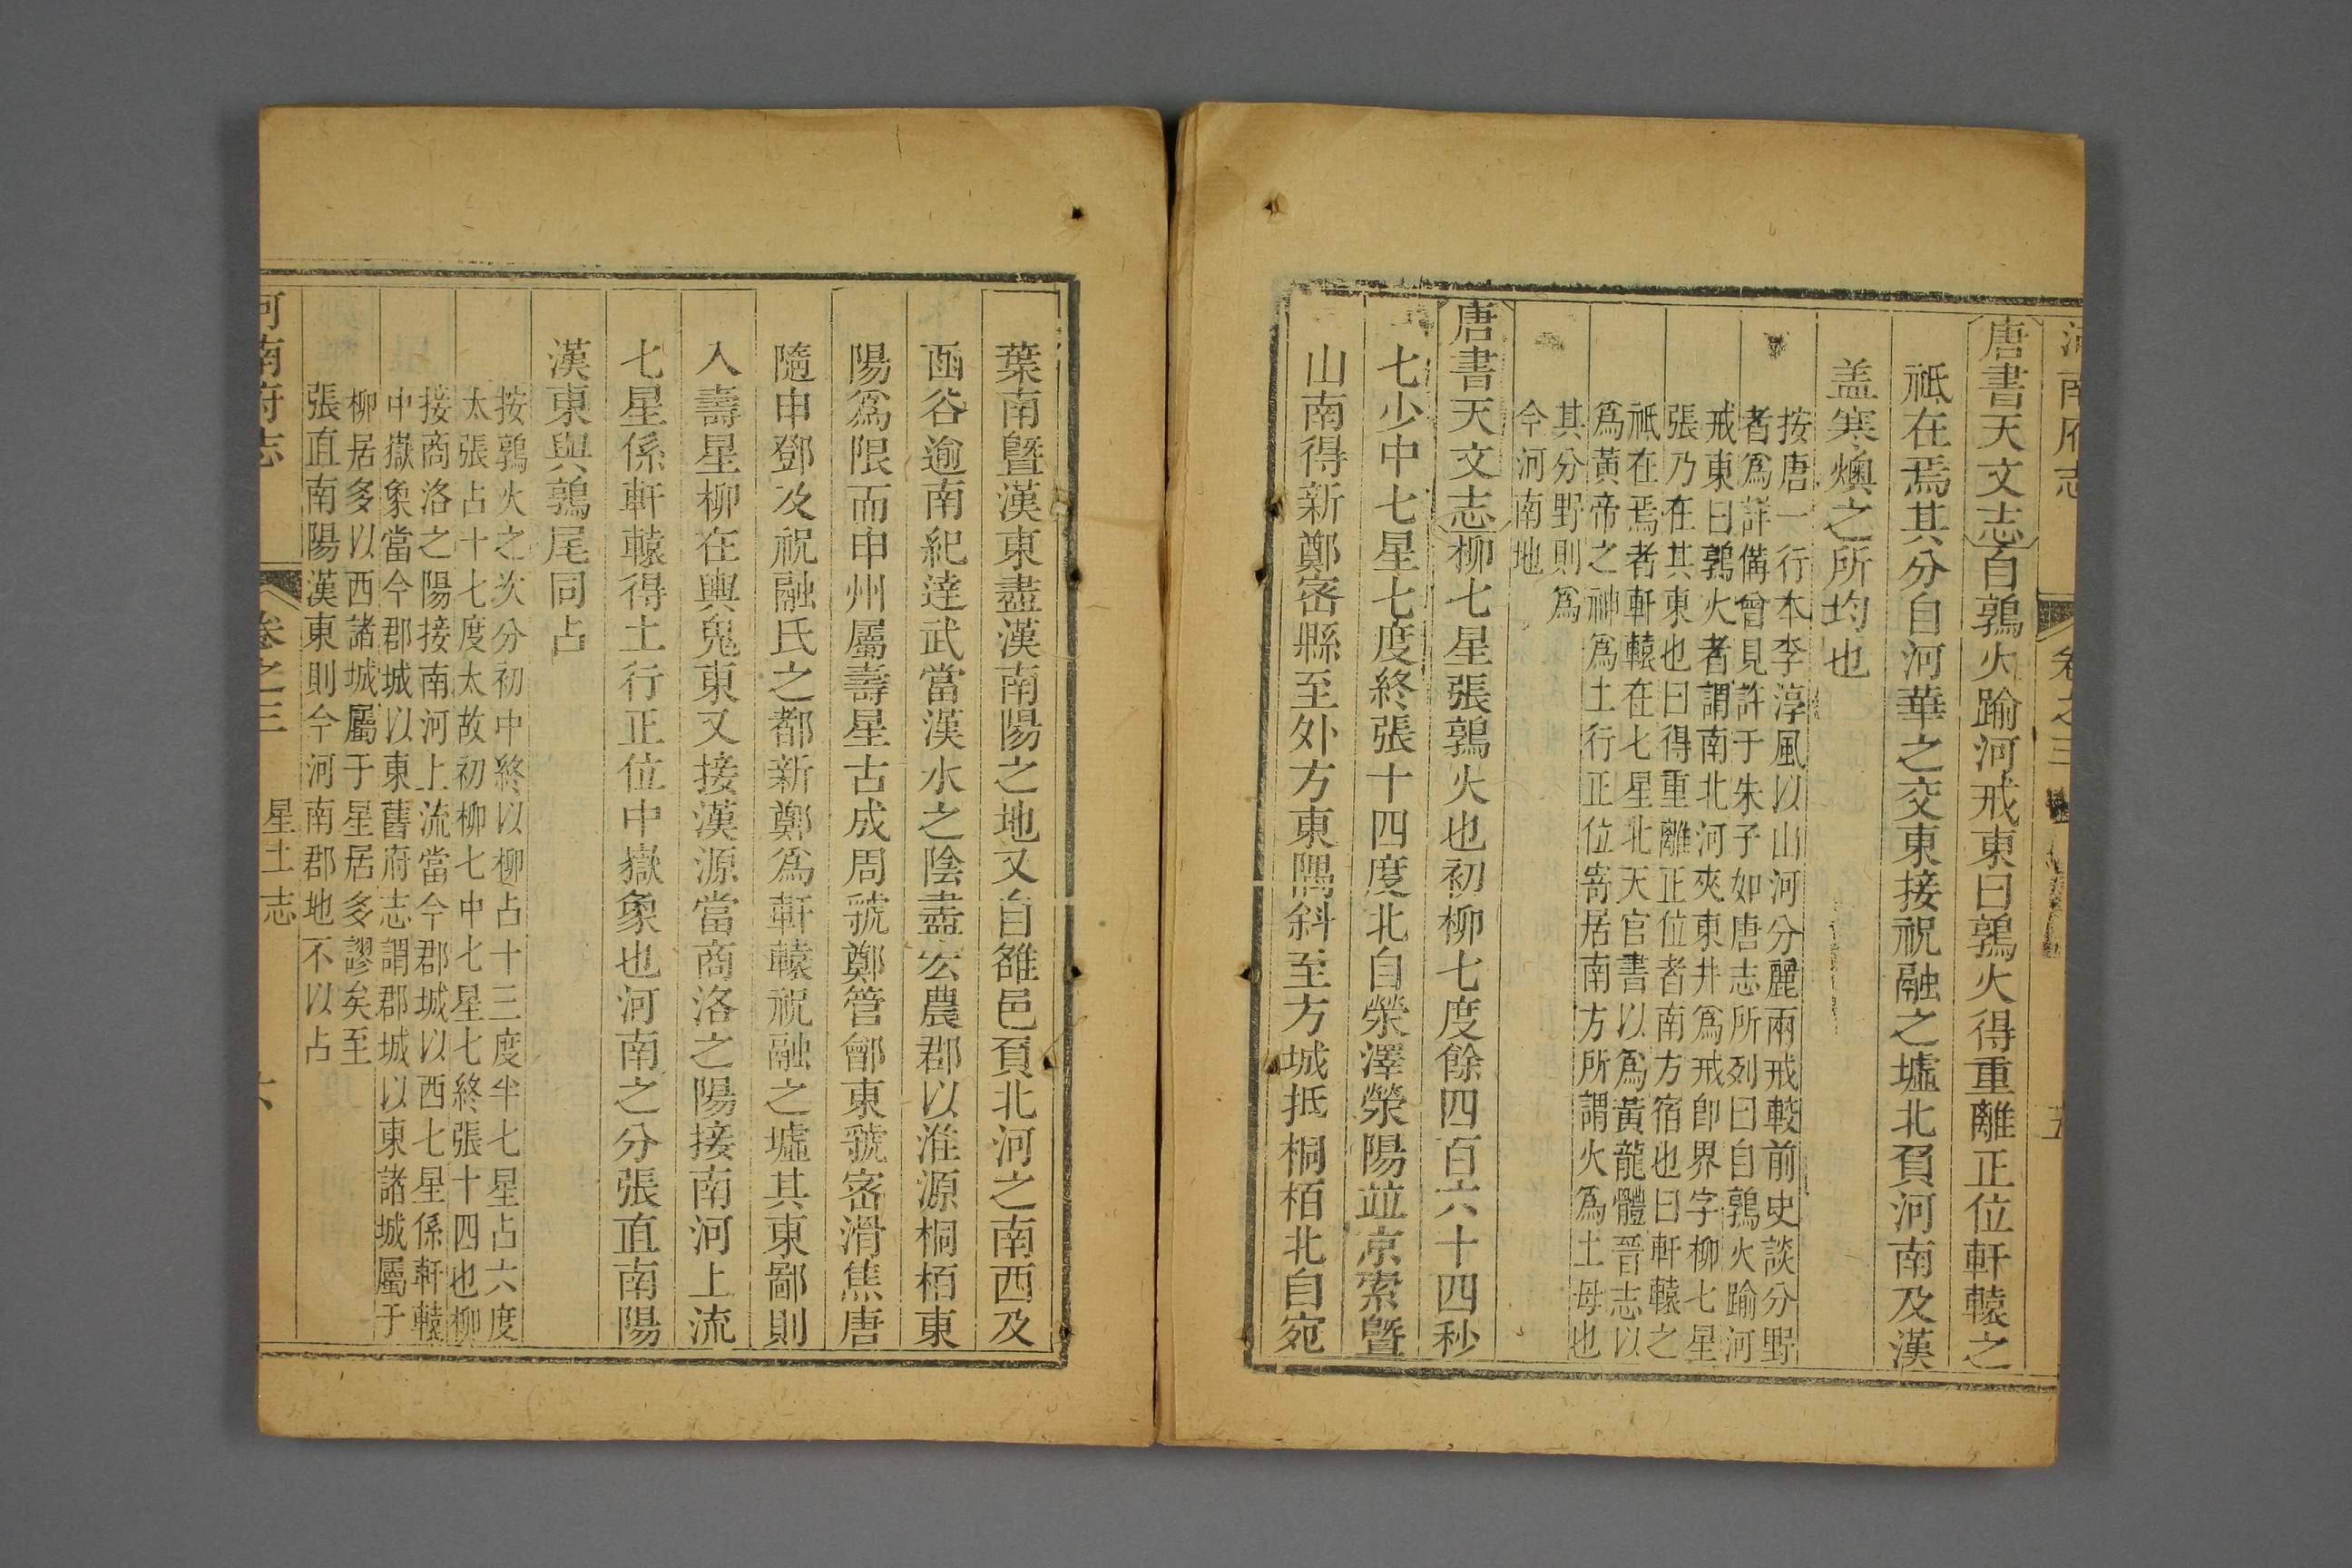 河南府志
卷之三
五
唐書天文志自鶉火踰河戒東曰鶉火得重離正位軒轅之
祗在焉其分自河華之交東接祝融之墟北負河南及漢
盖寒燠之所均也
按唐一行本李淳風以山河分麗兩戒較前史談分野
者爲詳備曾見許于朱子如唐志所列曰自鶉火踰河
戒東曰鶉火者謂南北河夾東井爲戒卽界字柳七星
張乃在其東也曰得重離正位者南方宿也曰軒轅之
祗在焉者軒轅在七星北天官書以爲黃龍體晉志以
爲黃帝之神爲土行正位寄居南方所謂火爲土母也
其分野則爲
今河南地
唐書天文志柳七星張鶉火也初柳七度餘四百六十四秒
七少中七星七度終張十四度北自滎澤滎陽並京索曁
山南得新鄭密縣至外方東隅斜至方城抵桐栢北自宛
葉南曁漢東盡漢南陽之地又自雒邑負北河之南西及
函谷逾南紀達武當漢水之陰盡宏農郡以淮源桐栢東
陽爲限而申州屬壽星古成周虢鄭管鄶東虢密滑焦唐
隨申鄧及祝融氏之都新鄭爲軒轅祝融之墟其東鄙則
入壽星柳在輿鬼東又接漢源當商洛之陽接南河上流
七星係軒轅得土行正位中嶽象也河南之分張直南陽
漢東與鶉尾同占
按鶉火之次分初中終以柳占十三度半七星占六度
太張占十七度太故初柳七中七星七終張十四也柳
接商洛之陽接南河上流當今郡城以西七星係軒轅
中嶽象當今郡城以東舊府志謂郡城以東諸城屬于
柳居多以西諸城屬于星居多謬矣至
張直南陽漢東則今河南郡地不以占
河南府志
卷之三
星土志
六